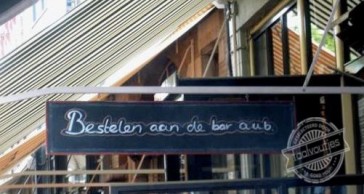 Bestelen aan de bar a.u.b.
taalvoutjes